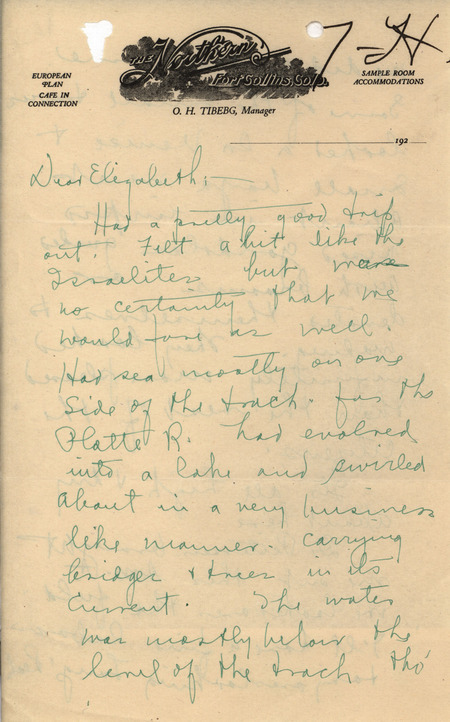 7-H
THE Northern
Fort Collins, Colo.
EUROPEAN
PLAN
CAFE IN
CONNECTION
SAMPLE ROOM
ACCOMMODATIONS
O. H. TIBEBG, Manager
192
Dear Elizabeth:
Had a pretty good trip
out. Felt a bit like the
Israelites but was
no certainty that we
would fare as well.
Had sea mostly on one
side of the track. for the
Platte R. had evolved
into a lake and swirled
about in a very business
like manner. carrying
bridges & trees in its
current. The water
was mostly below the
level of the track tho'